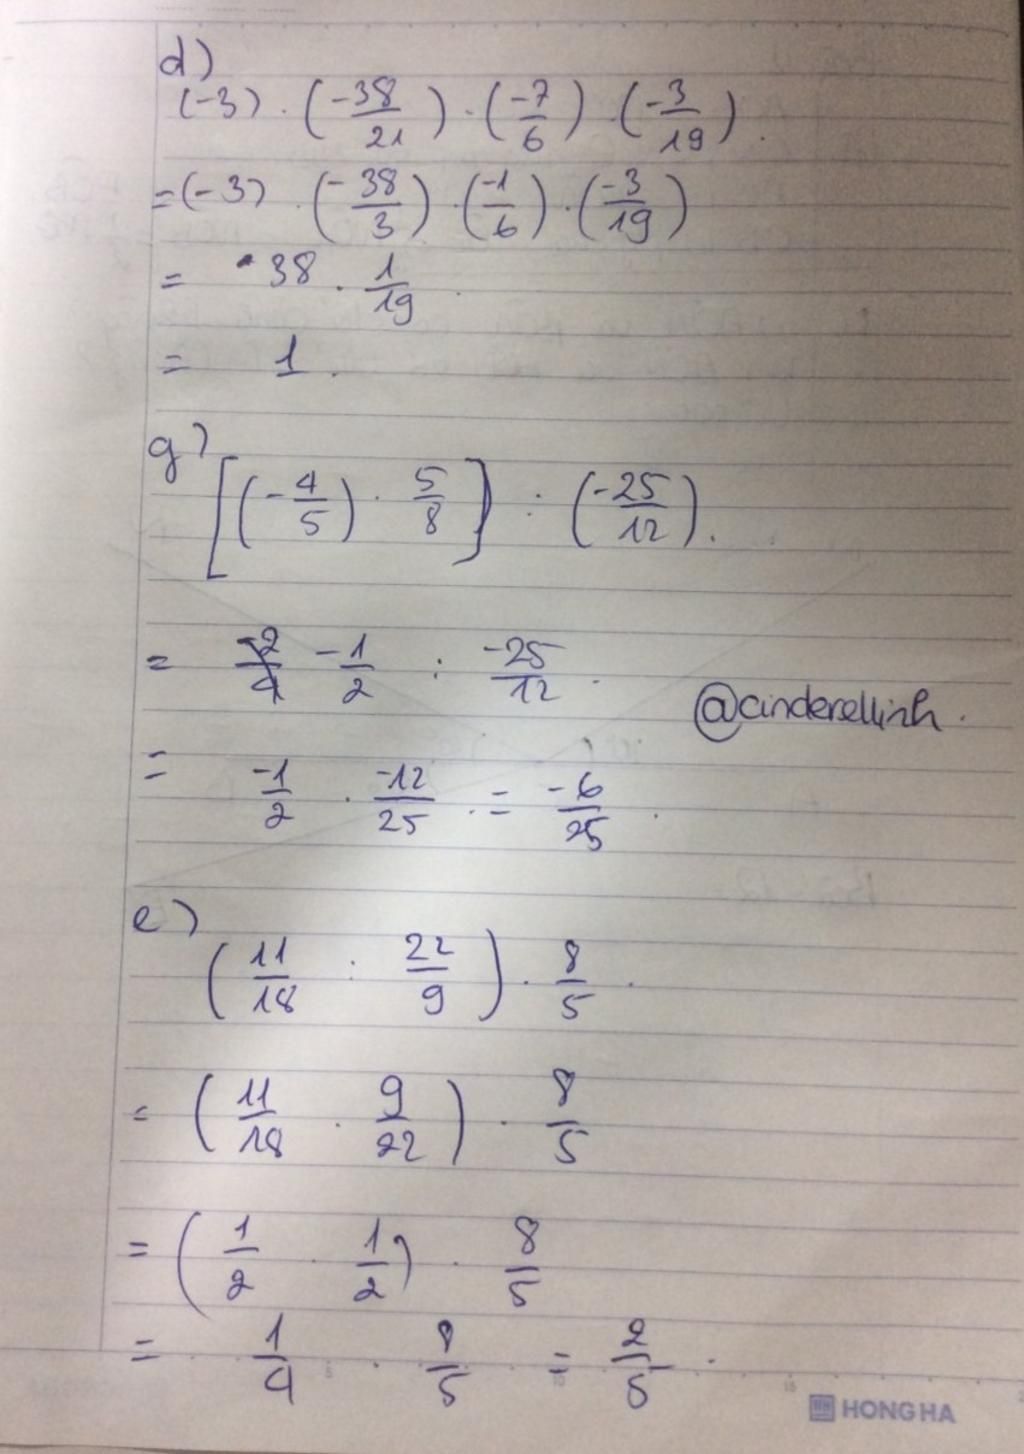 d)
(-3) . (-38/21) . (-7/6) . (-3/19) .
= (-3) . (-38/3) . (-1/6) . (-3/19)
= 38 . 1/19 .
= 1 .
g)
[(-4/5) . 5/8] : (-25/12) .
= -1/2 : -25/12 .
@cinderellinh .
= -1/2 . -12/25 . = -6/25 .
e)
(11/18 : 22/9) . 8/5 .
= (11/18 . 9/22) . 8/5
= (1/2 . 1/2) . 8/5
= 1/4 . 8/5 . = 2/5 .
HONG HA